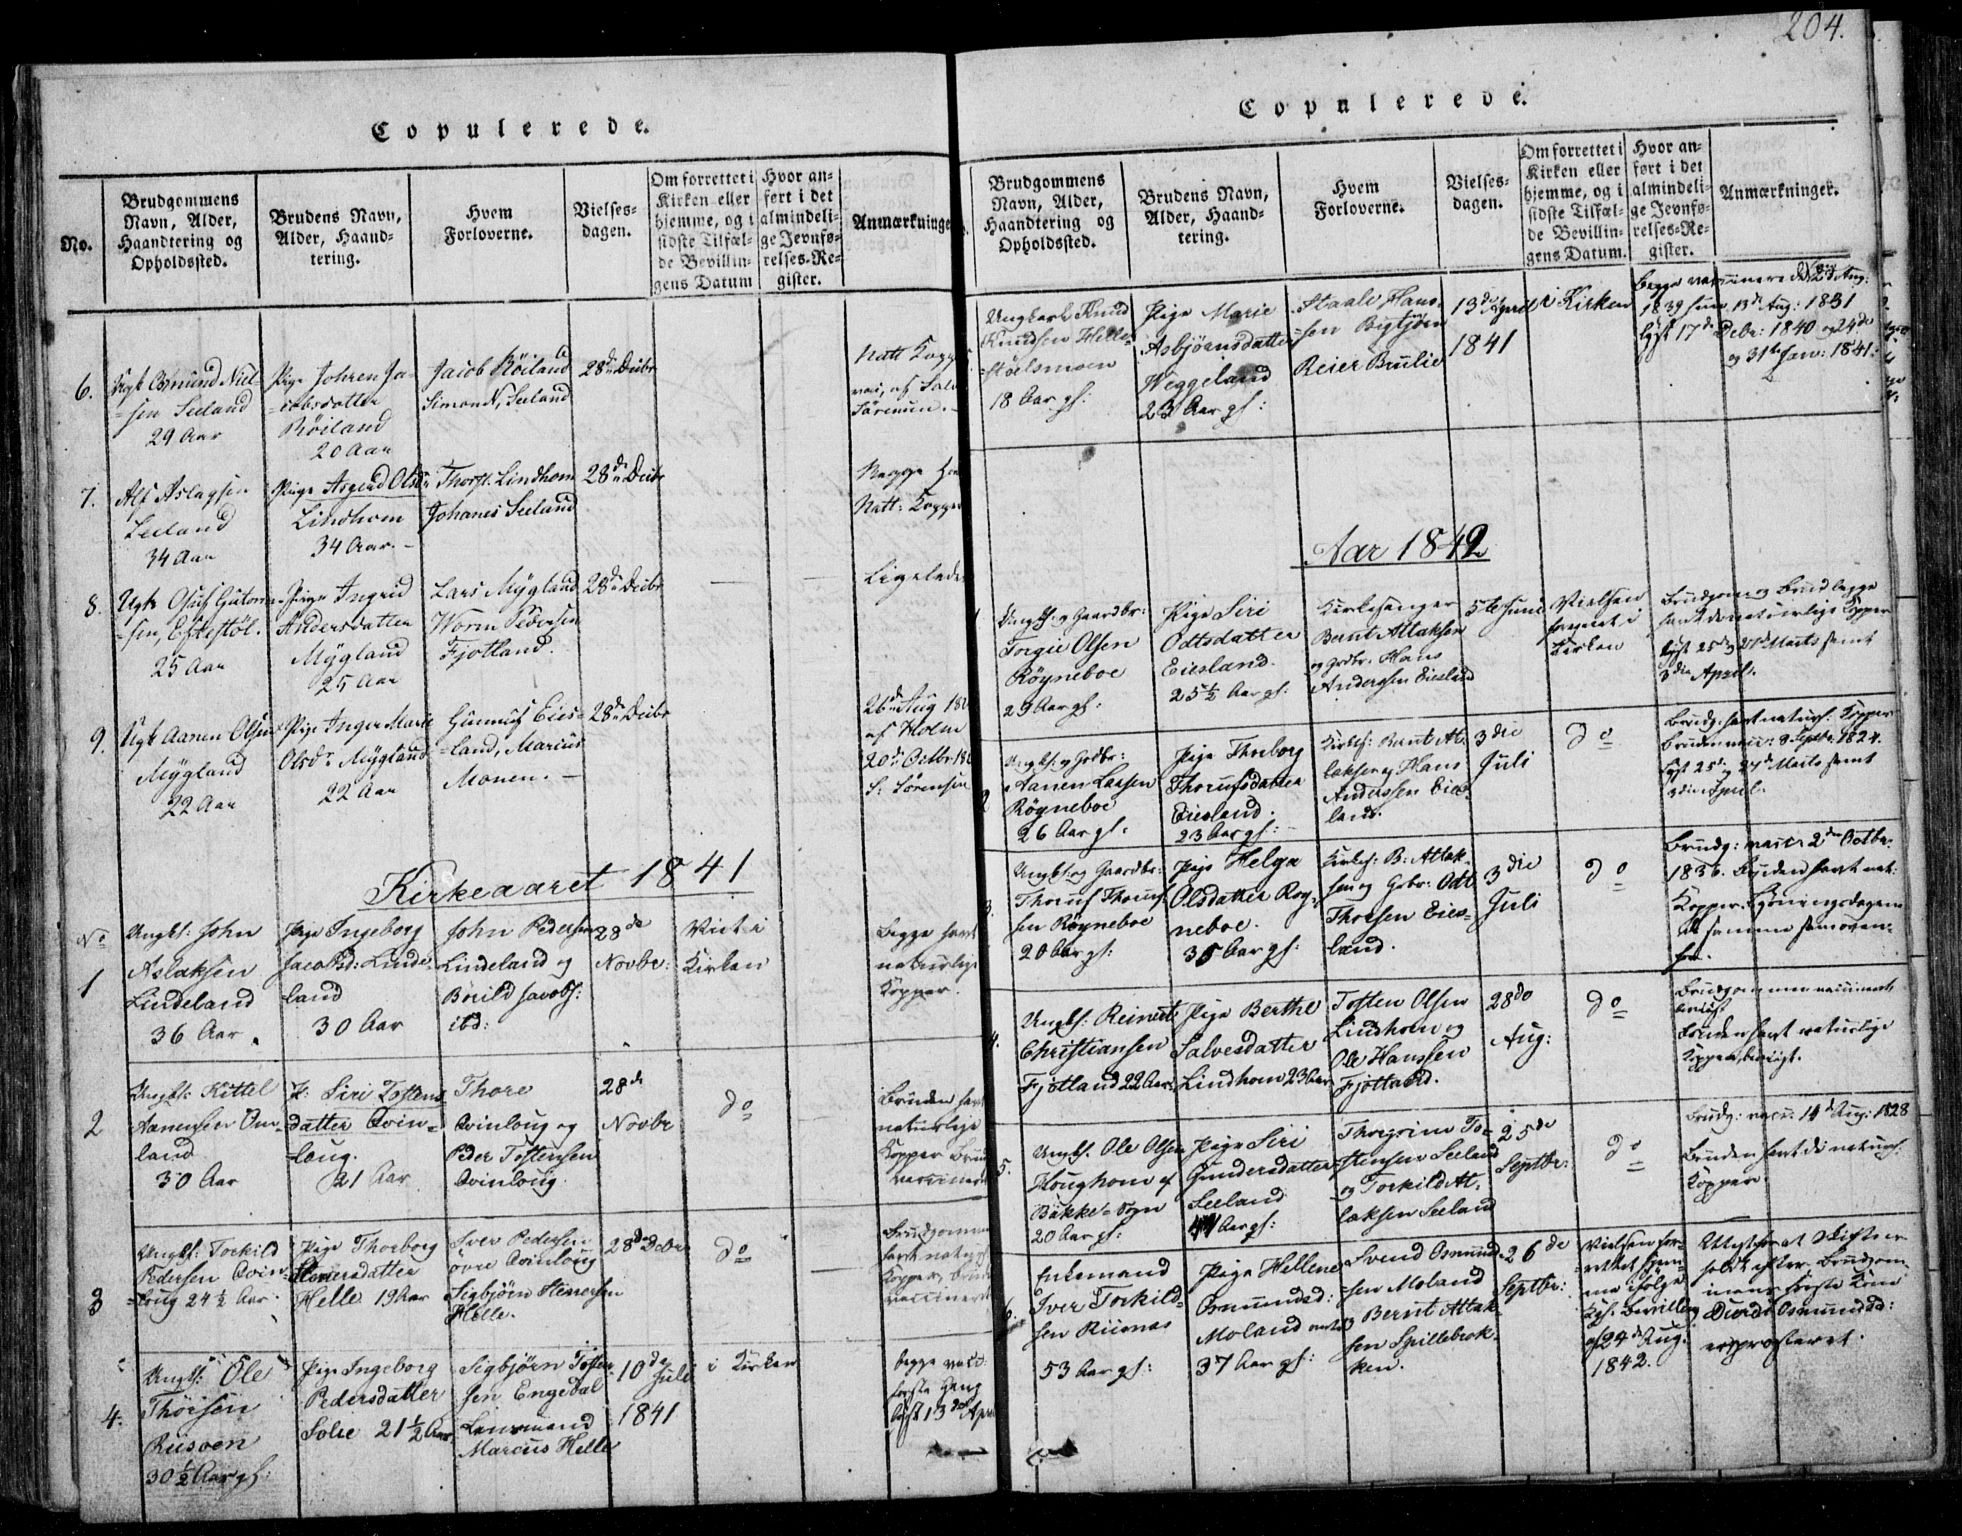 204.
Copulerede.
No.
Brudgommens
Navn, Alder,
Haandtering og
Opholdssted.
Brudens Navn,
Alder, Haand-
tering.
Hvem
Forloverne.
Vielses-
dagen.
Om forrettet i
Kirken eller
hjemme, og i
sidste Tilfæl-
de Bevillin-
gens Datum
Hvor an-
ført i det
almindeli-
ge Jevnfø-
relses-Re-
gister.
Anmærkninge
6.
Osmund Niel
-sen Seeland
29 Aar
Pige Johren Ja-
-cobsdatter
Röiland
20 Aar
Jacob Röiland
Simon N. Seeland
28de Decbr
Natt Kopper
7.
Alf Aslagsen
Seeland
34 Aar
Pige Asgerd Olsd
Lindhom
34 Aar.-
Thorst. Lindhom
Johanes Seeland
28de Decbr
Natt: Kopper
8.
Ugk Oluf Gutorm
-sen, Eftestöl.
25 Aar
Pige Ingrid
Andersdatter
Mygland
25 Aar
Lars Mygland
Worm Pedersen
Fjotland.
28de Decbr
Ligeledes
9.
Ugk Aanen Olsen
Mygland
22 Aar
Pige Inger Marie
Olsdr Mygland
22 Aar
Gunnuf Eies-
-land, Marcus
Monen.-
28de Decbr
26de Aug 18
af Holm
20de Octbr 18
S. Sörensen
Kirkeaaret 1841
No
1
Ungk: John
Aslaksen
Lindeland
36 Aar.
Pige Ingeborg
Jacobsd: Linde-
land
30 Aar
John Pedersen
Lindeland og
Börild Jacobs:
ibd:
28de
Novbr:
Viet i
Kirken
Begge havt
naturlige
Kopper.
2
Ungk: Kittel
Aanensen Om-
land
30 Aar
P: Siri Tostens
datter Qvin-
-loug.
21 Aar
Thore
Qvinloug og
Peder Tostensen
Qvinloug.
28de
Novbr
do
Bruden havt
naturlige
Kopper Brud
vaccineret
3
Ungk: Torkild
Pedersen Qvin-
-loug 24½ Aar.
Pige Thorborg
Helle 19 Aar
Iver Pedersen
övre Qvinloug
Sigbjörn
Helle.
28de Decbr
do
Brudgommen
havt naturl
Kopper, Bruden
vaccineret
4.
Ungk: Ole
Thorsen
Rusoen
30½ Aar gl:
Pige Ingeborg
Pedersdatter
Solie 21½ Aar
Sigbjörn Tosten
sen Engedal
Lensmand
Marcus Helle
10de Juli
1841
i Kirken
begge vacc:
förste Gang
lyst 13de Apr
Copulerede.
Brudgommens
Navn, Alder,
Haandtering og
Opholdssted.
Brudens Navn,
Alder, Haand-
tering.
Hvem
Forloverne.
Vielses-
dagen.
Om forrettet i
Kirken eller
hjemme, og i
sidste Tilfæl-
de Bevillin-
gens Datum.
Hvor an-
ført i det
almindeli-
ge Jevnfø-
relses-Re-
gister.
Anmærkninger.
Ungkarl Knud
Knudsen Helle-
-stöelsmoen
18 Aar gl:
Pige Marie
Asbjörnsdatter
Heggeland
23 Aar gl:
Staale Hans-
-sen Bigtjön
Reier Brulie
13de April
1841
i Kirken
Begge vaccinerede Aug:
1839 13de Aug: 1831
lyst 17de Decbr: 1840 og 24de
og 31te Janv: 1841.
Aar 1842
1
Ungk. og Gaardbr:
Torgie Olsen
Röyneboe
29 Aar gl:
Pige Siri
Odtsdatter
Eiesland.
25½ Aar gl:
Kirkesanger
Bernt Atlaksen
og Grdbr. Hans
Andersen Eiesland
5te Juni
Vielsen
i
Kirken
Brudgom og Brud begge
havt de naturlige Kopper
Lyst 25de og 27de Marts samt
3die April.
2
Ungk. og Grdbr:
Aanen Larsen
Röyneboe
26 Aar gl:
Pige Thorborg
Thorufsdatter
Eiesland.
23 Aar gl:
Kirkes: Bernt At-
laksen og Hans
Anderssen Eies-
land.
3die
Juli
do
Brudg: havt naturl: Kopper
Bruden vacc: 8 Septbr. 1824.
Lyst 25de og 27de Marts samt
3die April.
3.
Ungk: og Gaardbr:
Thoruf Thoruf-
sen Röyneboe
20 Aar gl:
Pige Helga
Olsdatter Röy-
neboe.
35 Aar gl:
Kirkes: B: Atlak-
sen og Grbr: Odt
Thorsen Eies-
land.
3die
Juli
do
Brudg: vacc: 2den Octbr.
1836. Bruden havt nat:
Kopper. Lysningsdagene
de samme som oven-
for.
4.
Ungk: Reinert
Christiansen
Fjotland 22 Aar.
Pige Berthe
Salvesdatter
Lindhom 23 Aar
Tosten Olsen
Lindhom og
Ole Hanssen
Fjotland.
28de
Aug:
do
Brudgommen vaccineret
Bruden havt naturlige
Kopper
5.
Ungk. Ole Olsen
Houghom af
Bakke-Sogn
20 Aar gl:
Pige Siri
Gundersdatter
Seeland
41 Aar gl:
Thorgrim To-
stensen Seeland
og Torkild At-
laksen Seeland
25de
Septbr:
do
Brudg: vacc: 14de Aug: 1828
Bruden havt de naturl:
Kopper.
6.
Enkemand
Iver Torkild-
sen Risnes
53 Aar gl:
Pige Hellene
Osmundsd:
Moland
37 Aar gl:
Svend Osmund-
-sen Moland
og Bernt Atlak-
sen Spillebrok-
ken.
26de
Septbr:
Vielsen for-
rettet hjem-
me ifölge
Kgl. Bevilling
af 24de Aug.
1842.
Attest for at Skifte er
holdt efter Brudgom-
mens förste Kone
Osmundsd: